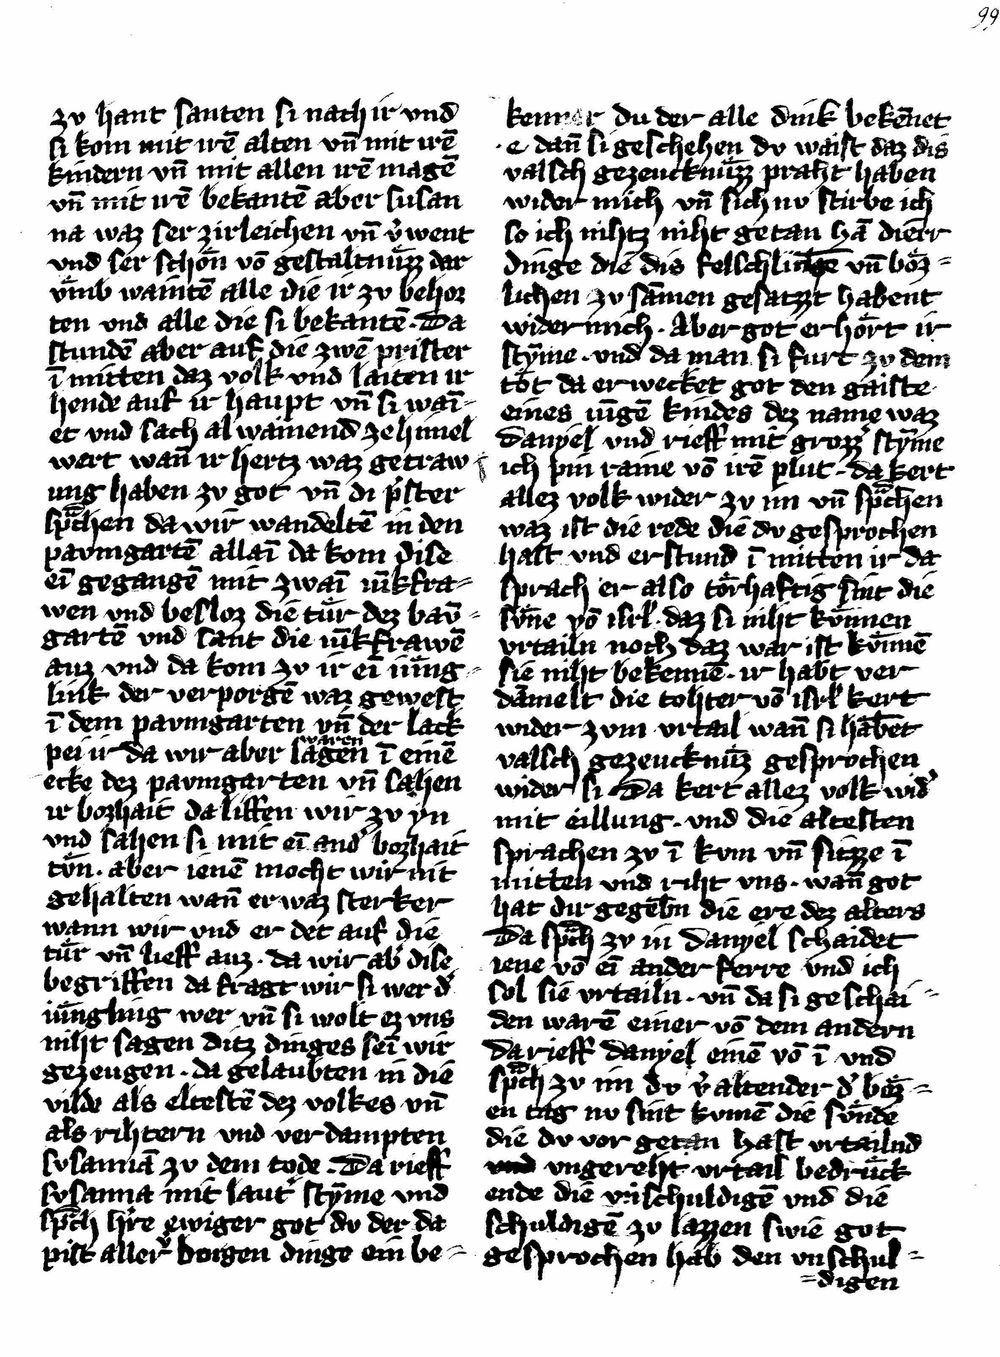 99
zv hant santen si nach ir und
si kom mit irē alten vn̄ mit irē
kindern vn̄ mit allen irē magē
vn̄ mit irē bekantē aber susan
na waz ser zirleichen vn̄ v̓went
vnd ser schön vō gestaltnüzz dar
vmb waintē alle die ir zv behor
ten vnd alle die si bekantē. Da
stundē aber auf die zwē prister
ī mitten daz volk vnd laiten ir
hende auf ir haupt vn̄ si wai=
et vnd sach al wainend ze himel
wert wan̄ ir hertz waz getraw
ung haben zv got vn̄ di p̓ster
sp̄chen da wir wandeltē in den
pavmgartē allaī da kom dise
eī gegangē mit zwaī iūkfra=
wen vnd besloz die tür dez bav̄=
gartē vnd sant die iūkfrawē
auz vnd da kom zv ir eī iüng=
link der verporgē waz gewest
ī dem pavmgarten vn̄ der lack
waren
pei ir da wir aber lagen ī einē
ecke dez pavmgarten vn̄ sahen
ir bozhait da liffen wir zv yn
vnd sahen si mit eī and̓ bozhait
tön. aber ienē mocht wir nit
gehalten wan̄ er waz sterker
wann wir vnd er det auf die
tür vn̄ lieff auz. da wir ab̓ dise
begriffen da fragt wir si wer d̓
iüngling wer vn̄ si wolt ez vns
niht sagen ditz dinges seī wir
gezeugen. da gelaubten in die
vilde als eltestē dez volkes vn̄
als rihtern vnd verdampten
svsannā zv dem tode. Da rieff
svsanna mit laut̓ stȳme vnd
sp̄ch h̓re ewiger got dv der da
pist aller v̓borgen dinge ein be=
kenner du der alle dink bekēnet
e dan̄ si geschehen dv waist daz dis
valsch gezeucknüzz praht haben
wider mich vn̄ sich nv stirbe ich
so ich nihtz niht getan hā dierr
dinge die dis felschlingē vn̄ böz=
lichen zv sāmen gesatzzt habent
wider mich. Aber got erhört ir
stȳme. vnd da man si furt zv dem
töt da erwecket got den gaiste
eines iūgē kindes dez name waz
Danyel vnd rieff mit grozz̓ stȳme
ich pin raine vō irē plut. da kert
allez volk wider zv im vn̄ sp̄chen
waz ist die rede die dv gesprochen
hast vnd er stund ī mitten ir da
sprach er also törhaftig sint die
sv̄ne vō isrl̓. daz si niht künnen
vrtailn noch daz war ist künnē
sie niht bekennē. ir habt ver
dāmelt die tohter vō isrl̓ kert
wider zvm vrtail wan̄ si habēt
valsch gezeucknüz gesprochen
wider si Da kert allez volk wid̓
mit eillung. vnd die altesten
sprachen zv ī kvm vn̄ sitzze ī
mitten vnd riht vns. wan̄ got
hat dir gegebn̄ die ere dez alters
Da sp̄ch zv in Danyel schaidet
iene vō eī ander ferre vnd ich
sol sie vrtailn. vn̄ da si geschai=
den warē einer vō dem andern
Da rieff danyel einē vō ī vnd
sp̄ch zv im dv v̓altender d̓ böz=
en tag nv sint kvmē die sünde
die dv vor getan hast vrtailnd
vnd vngereht vrtail bedrück
ende die vnschuldigē vnd die
schuldigē zv lazzen swie got
gesprochen hab den vnschul=
=digen